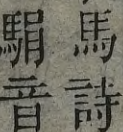 馬詩
駽音